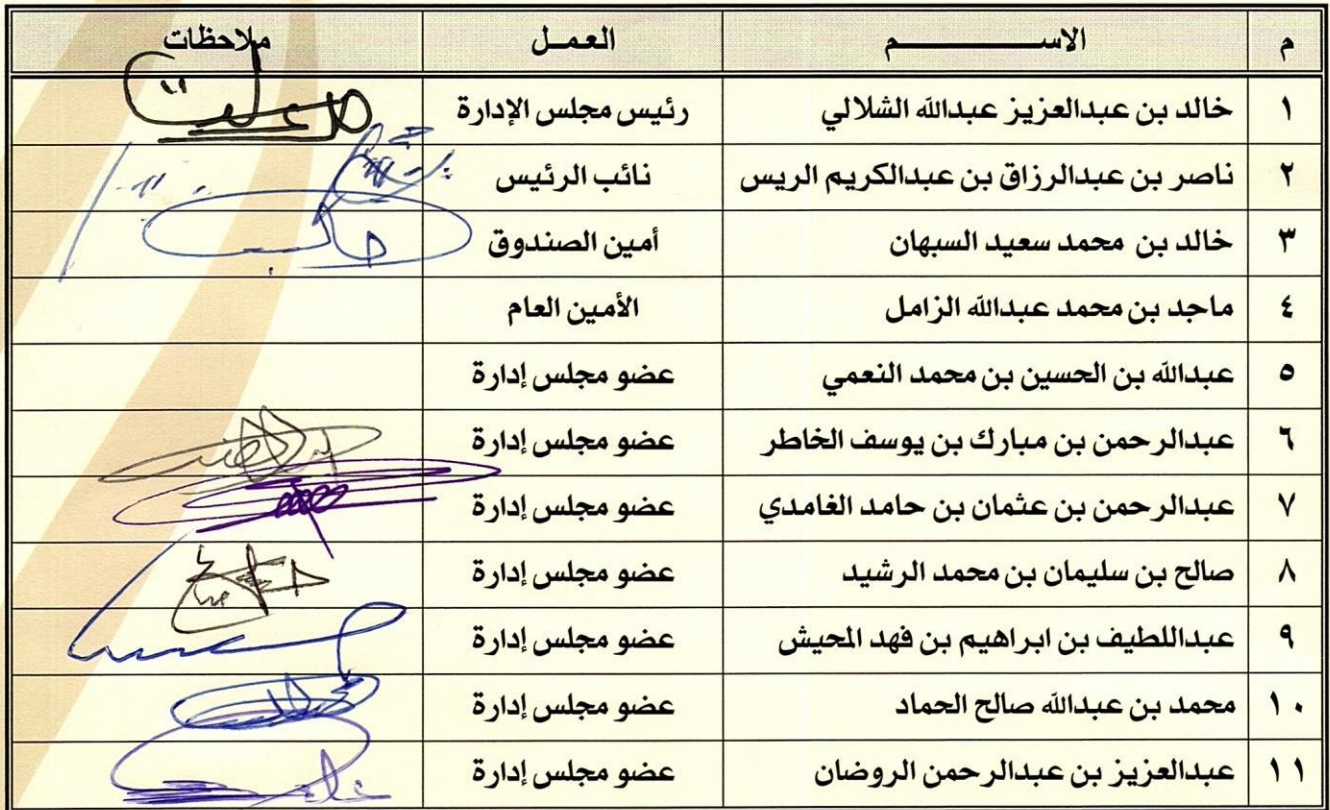 م الاســـــــــــم العمـل ملاحظات
١ خالد بن عبدالعزيز عبدالله الشلالي رئيس مجلس الإدارة
٢ ناصر بن عبدالرزاق بن عبدالكريم الريس نائب الرئيس
٣ خالد بن محمد سعيد السبهان أمين الصندوق
٤ ماجد بن محمد عبدالله الزامل الأمين العام
٥ عبدالله بن الحسين بن محمد النعمي عضو مجلس إدارة
٦ عبدالرحمن بن مبارك بن يوسف الخاطر عضو مجلس إدارة
٧ عبدالرحمن بن عثمان بن حامد الغامدي عضو مجلس إدارة
٨ صالح بن سليمان بن محمد الرشيد عضو مجلس إدارة
٩ عبداللطيف بن ابراهيم بن فهد المحيش عضو مجلس إدارة
١٠ محمد بن عبدالله صالح الحماد عضو مجلس إدارة
١١ عبدالعزيز بن عبدالرحمن الروضان عضو مجلس إدارة